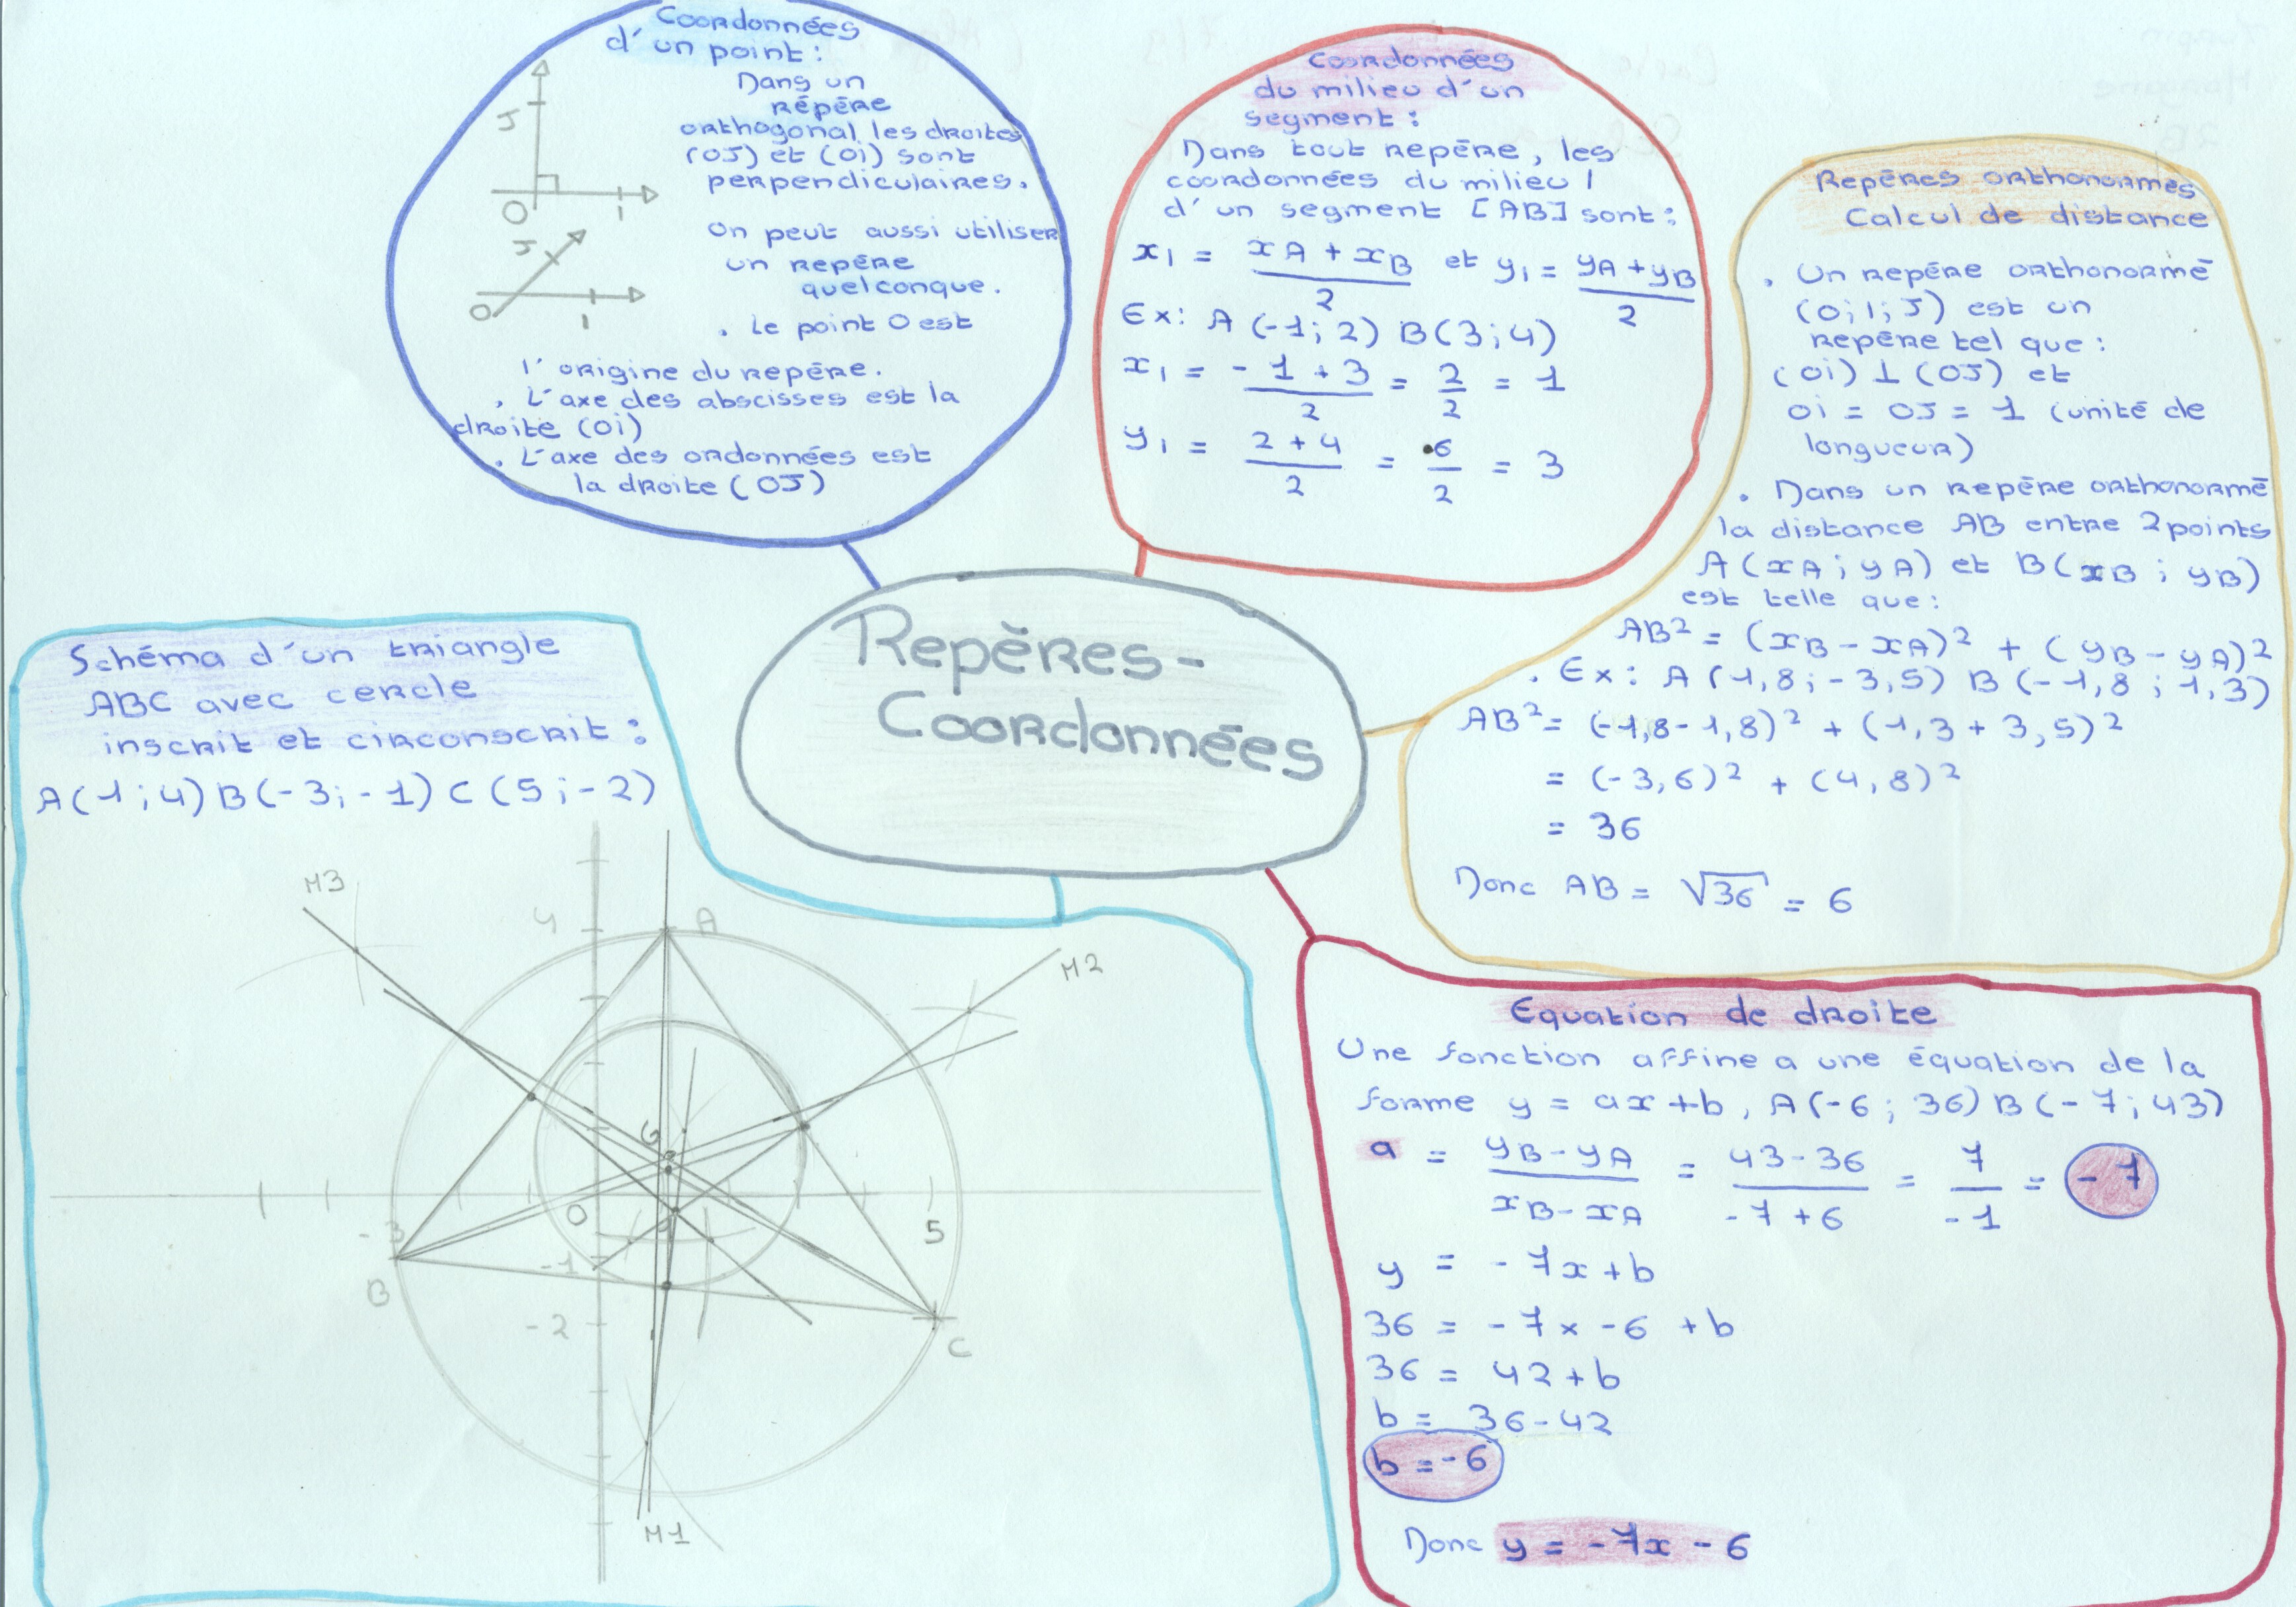 Coordonnées
d'un point :
Dans un
répère
orthogonal les droites
(OJ) et (Oi) sont
perpendiculaires.
On peut aussi utiliser
un repère
quelconque.
. Le point O est
l'origine du repère.
. L'axe des abscisses est la
droite (Oi)
. L'axe des ordonnées est
la droite (OJ)
J
O
I
J
O
I
Coordonnées
du milieu d'un
segment :
Dans tout repère, les
coordonnées du milieu I
d'un segment [AB] sont :
xI = (xA + xB)/2 et yI = (yA + yB)/2
Ex : A (-1 ; 2) B(3 ; 4)
xI = (-1 + 3)/2 = 2/2 = 1
yI = (2 + 4)/2 = 6/2 = 3
Repères orthonormés
Calcul de distance
. Un repère orthonormé
(O ; I ; J) est un
repère tel que :
(Oi) ⊥ (OJ) et
Oi = OJ = 1 (unité de
longueur)
. Dans un repère orthonormé
la distance AB entre 2 points
A(xA ; yA) et B(xB ; yB)
est telle que :
AB² = (xB - xA)² + (yB - yA)²
. Ex : A (1,8 ; -3,5) B (-1,8 ; 1,3)
AB² = (-1,8 - 1,8)² + (1,3 + 3,5)²
= (-3,6)² + (4,8)²
= 36
Donc AB = √36 = 6
Repères -
Coordonnées
Schéma d'un triangle
ABC avec cercle
inscrit et circonscrit :
A(1 ; 4) B(-3 ; -1) C (5 ; -2)
M3
4
A
M2
G
O
-3
5
B
-1
-2
C
M1
Equation de droite
Une fonction affine a une équation de la
forme y = ax + b, A(-6 ; 36) B(-7 ; 43)
a = (yB - yA)/(xB - xA) = (43 - 36)/(-7 + 6) = 7/-1 = -7
y = -7x + b
36 = -7 x -6 + b
36 = 42 + b
b = 36 - 42
b = -6
Donc y = -7x - 6